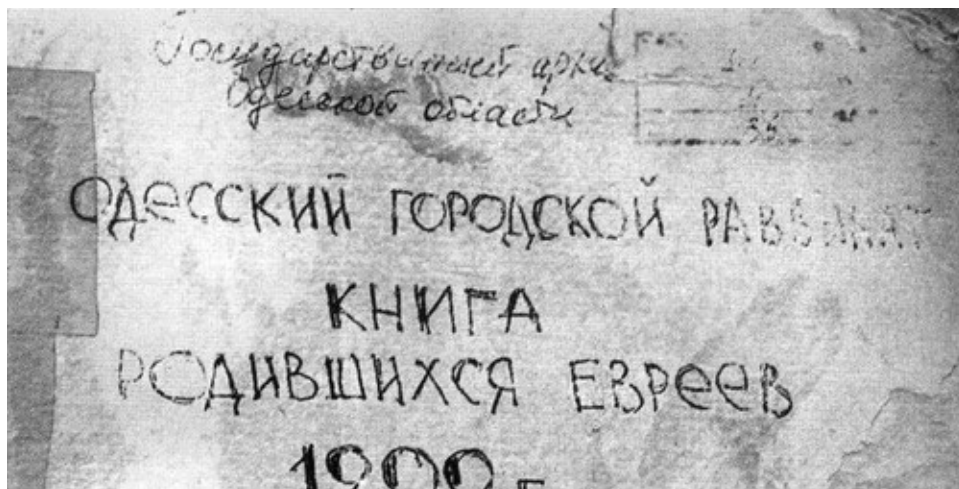 Государственный архив
Одесской области
ОДЕССКИЙ ГОРОДСКОЙ РАВВИНАТ
КНИГА
РОДИВШИХСЯ ЕВРЕЕВ
г.